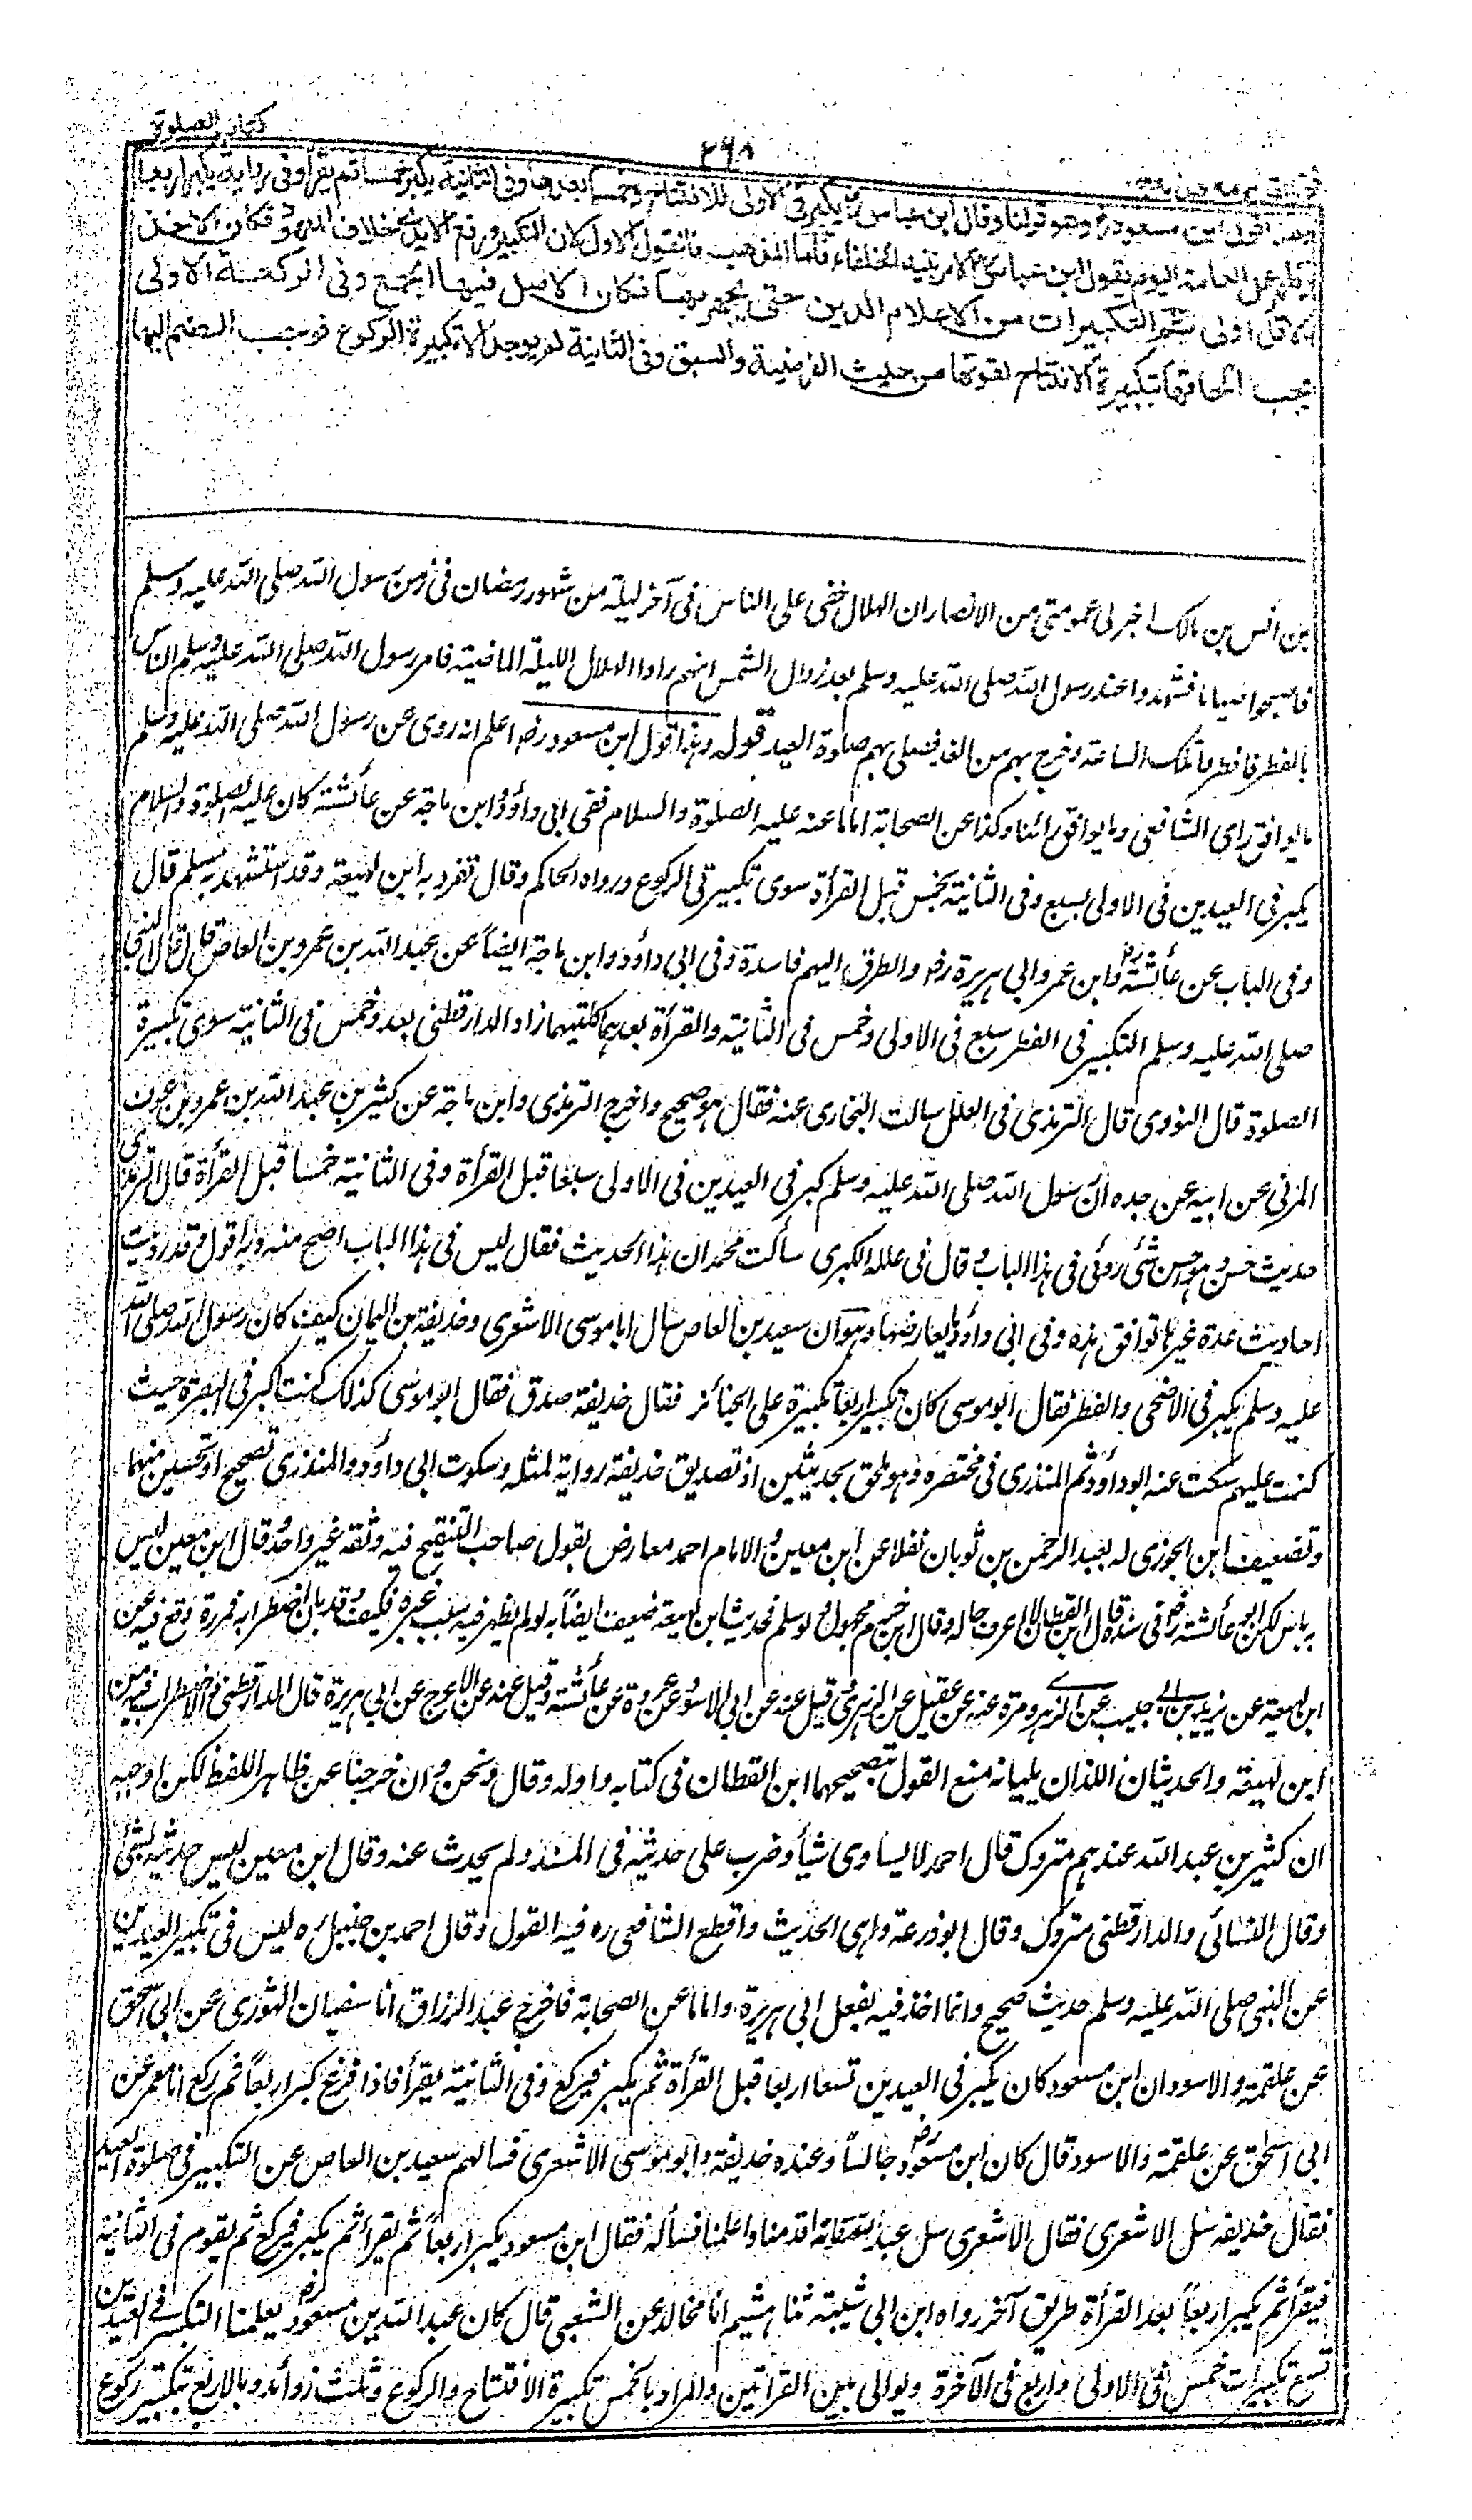 كتاب الصلوة
٢٦٨
وهذا قول ابن مسعود رض وهو قولنا وقال ابن عباس رض يكبر فى الاولى للافتتاح وخمسا بعدها وفى الثانية يكبر خمسا ثم يقرأ وفى رواية يكبر اربعا
وظهر عمل العامة اليوم بقول ابن عباس رض لامر بنيه الخلفاء فاما المذهب فالقول الاول لان التكبير ورفع الايدى خلاف المعهود فكان الاخذ
بالاقل اولى ثم التكبيرات من الاعلام الدين حتى يجهر بها فكان الاصل فيها الجمع وفى الركعة الاولى
يجب الحاقها بتكبيرة الافتتاح لقوتها من حيث الفرضية والسبق وفى الثانية لم يوجد الا تكبيرة الركوع فوجب الضم اليها
بن انس بن مالك اخبرلى عمومتى من الانصار ان الهلال خفى على الناس فى آخر ليلة من شهور رمضان فى زمن رسول الله صلى الله عليه وسلم
فاصبحوا صياما فشهدوا عند رسول الله صلى الله عليه وسلم بعد زوال الشمس انهم راوا الهلال الليلة الماضية فامر رسول الله صلى الله عليه وسلم الناس
بالفطر فافطروا تلك الساعة وخرج بهم من الغد فصلى بهم صلوة العيد قوله وهذا قول ابن مسعود رضه اعلم انه روى عن رسول الله صلى الله عليه وسلم
ما يوافق راى الشافعى وما يوافق رائنا وكذا عن الصحابة اما ما عنه عليه الصلوة والسلام ففى ابى داؤد وابن ماجة عن عائشة كان عليه الصلوة والسلام
يكبر فى العيدين فى الاولى بسبع وفى الثانية بخمس قبل القرأة سوى تكبيرتى الركوع ورواه الحاكم وقال تفرد به ابن لهيعة وقد استشهد به مسلم قال
وفى الباب عن عائشة رض وابن عمر وابى هريرة رضه والطرق اليهم فاسدة وفى ابى داؤد وابن ماجة ايضاً عن عبد الله بن عمرو بن العاص قال قال النبى
صلى الله عليه وسلم التكبير فى الفطر سبع فى الاولى وخمس فى الثانية والقرأة بعدهما كلتيهما زاد الدارقطنى بعد وخمس فى الثانية سوى تكبيرة
الصلوة قال النووى قال الترمذى فى العلل سالت البخارى عنه فقال هو صحيح واخرج الترمذى وابن ماجة عن كثير بن عبد الله بن عمرو بن عوف
المزنى عن ابيه عن جده ان رسول الله صلى الله عليه وسلم كبر فى العيدين فى الاولى سبعا قبل القرأة وفى الثانية خمسا قبل القرأة قال الترمذى
حديث حسن وهو احسن شئ روى فى هذا الباب وقال فى علله الكبرى سألت محمدا عن هذا الحديث فقال ليس فى هذا الباب اصح منه وبه اقول وقد رويت
احاديث عدة غيرها توافق هذه وفى ابى داؤد ما يعارضها وهو ان سعيد بن العاص سال ابا موسى الاشعرى وحذيفة بن اليمان كيف كان رسول الله صلى الله
عليه وسلم يكبر فى الاضحى والفطر فقال ابو موسى كان يكبر اربعا تكبيرة على الجنائز فقال حذيفة صدق فقال ابو موسى كذلك كنت اكبر فى البصرة حيث
كنت عليهم سكت عنه ابو داؤد ثم المنذرى فى مختصره وهو ملحق بحديثين اذ تصديق حذيفة رواية لمثله وسكوت ابى داؤد والمنذرى تصحيح او تحسين منهما
وتضعيف ابن الجوزى له بعبد الرحمن بن ثوبان نقلا عن ابن معين والامام احمد معارض بقول صاحب التنقيح فيه وثقه غير واحد وقال ابن معين ليس
به باس لكن ابو عائشة فى سنده قال ابن القطان لا اعرف حاله وقال ابن حزم مجهول ولو سلم فحديث ابن لهيعة ضعيف ايضاً به لو لم يظهر فيه سبب غيره فكيف وقد بان اضطرابه فمرة وقع فيه عن
ابن لهيعة عن يزيد بن ابى حبيب عن الزهرى ومرة عنه عن عقيل عن الزهرى وقيل عنه عن ابى الاسود عن عروة عن عائشة وقيل عنه عن الاعرج عن ابى هريرة قال الدارقطنى والاضطراب فيه من
ابن لهيعة والحديثان اللذان يليانه منع القول بتصحيحهما ابن القطان فى كتابه واوله وقال ونحن وان خرجنا عن ظاهر اللفظ لكن اوجبه
ان كثير بن عبد الله عندهم متروك قال احمد لا يساوى شيأ وضرب على حديثه فى المسند ولم يحدث عنه وقال ابن معين ليس حديثه بشئ
وقال النسائى والدارقطنى متروك وقال ابو زرعة واهى الحديث واقطع الشافعى ره فيه القول وقال احمد بن حنبل ره ليس فى تكبير العيدين
عن النبى صلى الله عليه وسلم حديث صحيح وانما اخذ فيه بفعل ابى هريرة واما ما عن الصحابة فاخرج عبد الرزاق انا سفيان الثورى عن ابى اسحق
عن علقمة والاسود ان ابن مسعود كان يكبر فى العيدين تسعا اربعا قبل القرأة ثم يكبر فيركع وفى الثانية يقرأ فاذا فرغ كبر اربعاً ثم ركع انا معمر عن
ابى اسحق عن علقمة والاسود قال كان ابن مسعود رض جالساً وعنده حذيفة وابو موسى الاشعرى فسالهم سعيد بن العاص عن التكبير فى صلوة العيد
فقال حذيفه سل الاشعرى فقال الاشعرى سل عبد الله فانه اقدمنا واعلمنا فسأله فقال ابن مسعود يكبر اربعاً ثم يقرأ ثم يكبر فيركع ثم يقوم فى الثانية
فيقرأ ثم يكبر اربعاً بعد القرأة طريق آخر رواه ابن ابى شيبة ثنا هشيم انا مخالد عن الشعبى قال كان عبد الله بن مسعود رض يعلمنا التكبير فى العيدين
تسع تكبيرات خمس فى الاولى واربع فى الآخرة ويوالى بين القرأتين والمراد بالخمس تكبيرة الافتتاح والركوع وثلث زوائد وبالاربع تكبير ركوع